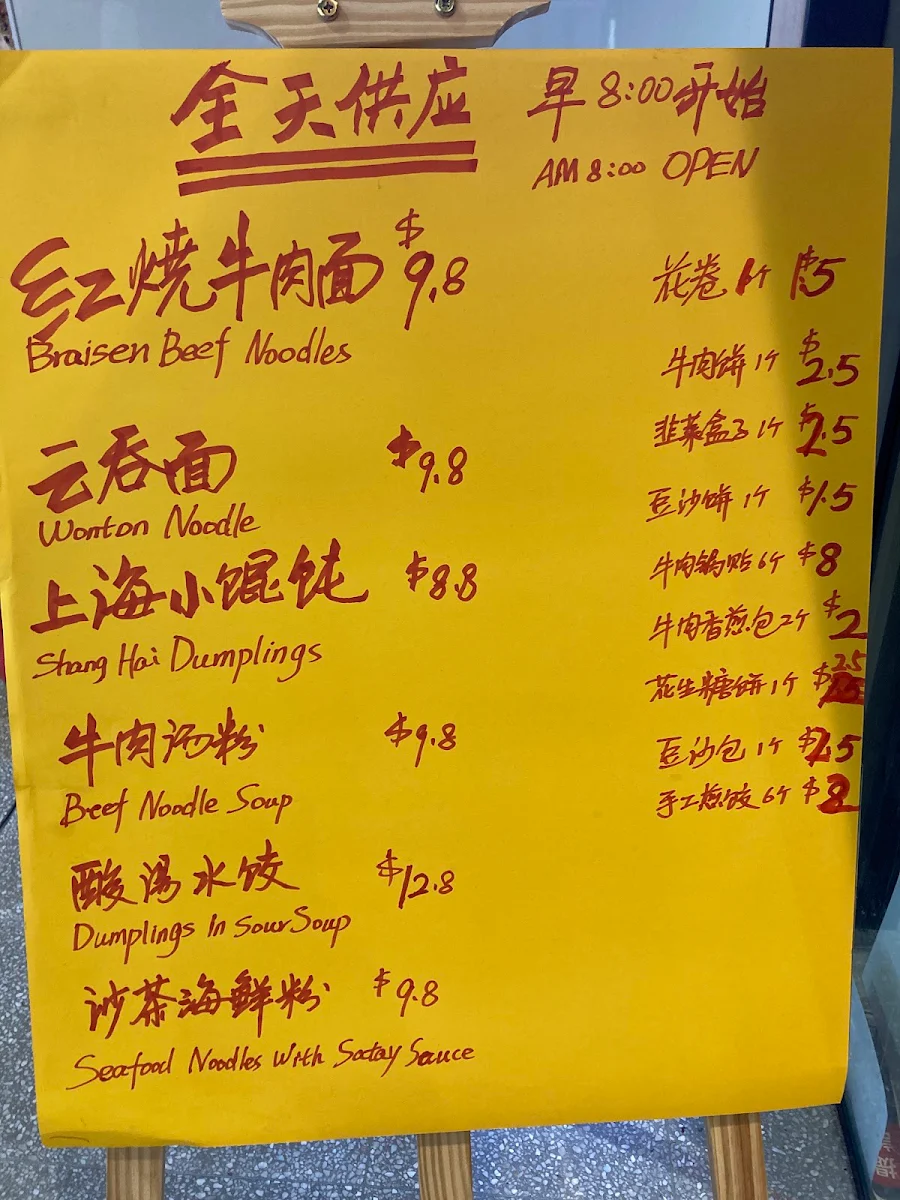 全天供应
早8:00开始
AM 8:00 OPEN
红烧牛肉面 $9.8
Braisen Beef Noodles
云吞面 $9.8
Wonton Noodle
上海小馄饨 $8.8
Shang Hai Dumplings
牛肉汤粉 $9.8
Beef Noodle Soup
酸汤水饺 $12.8
Dumplings in Sour Soup
沙茶海鲜粉 $9.8
Seafood Noodles with Satay Sauce
花卷1个 $1.5
牛肉饼1个 $2.5
韭菜盒子1个 $2.5
豆沙饼1个 $1.5
牛肉锅贴6个 $8
牛肉香煎包2个 $2
花生糖饼1个 $2.5
豆沙包1个 $2.5
手工煎饺6个 $8